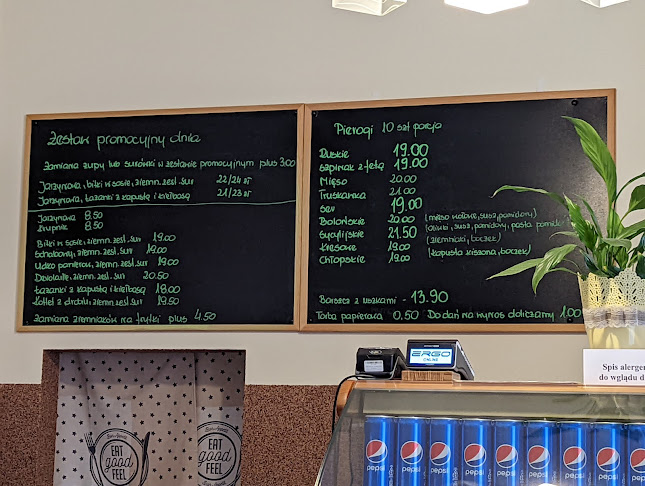 Zestaw promocyjny dnia
Zamiana zupy lub surówki w zestawie promocyjnym plus 3.00
Jarzynowa, bitki w sosie, ziemn. zest. sur 22/24 zł
Jarzynowa, łazanki z kapustą i kiełbasą 21/23 zł
Jarzynowa 8.50
Krupnik 8.50
Bitki w sosie, ziemn. zest. sur 19.00
Schabowy, ziemn. zest. sur 19.00
Udko panierow, ziemn. zest. sur 19.00
Devolaile, ziemn. zest. sur 20.50
Łazanki z kapustą i kiełbasą 18.00
Kotlet z drobiu, ziemn. zest. sur 19.50
Zamiana ziemniaków na frytki plus 4.50
Pierogi 10 szt porcja
Ruskie 19.00
Szpinak z fetą 19.00
Mięso 20.00
Truskawka 21.00
Ser 19.00
Bolońskie 20.00 (mięso wołowe, susz, pomidory)
Sycylijskie 21.50 (oliwki, susz, pomidory, pasta pomidor
Kresowe 19.00 (ziemniaki, boczek)
Chłopskie 19.00 (kapusta kiszona, boczek)
Barszcz z uszkami - 13.90
Torba papierowa 0.50 Do dań na wynos doliczamy 1.00
ERGO
ONLINE
Spis alerge
do wglądu
EAT
good
FEEL
EAT
good
FEEL
pepsi
pepsi
pepsi
pepsi
pepsi
pepsi
pepsi
pepsi
pepsi